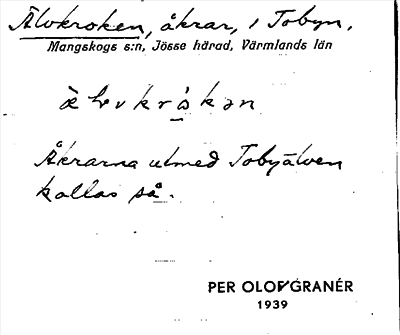 Älvkroken, åkrar, i Tobyn.
Mangskogs s:n, Jösse härad, Värmlands län
Åkrarna utmed Tobyälven
kallas så.
PER OLOF GRANÉR
1939